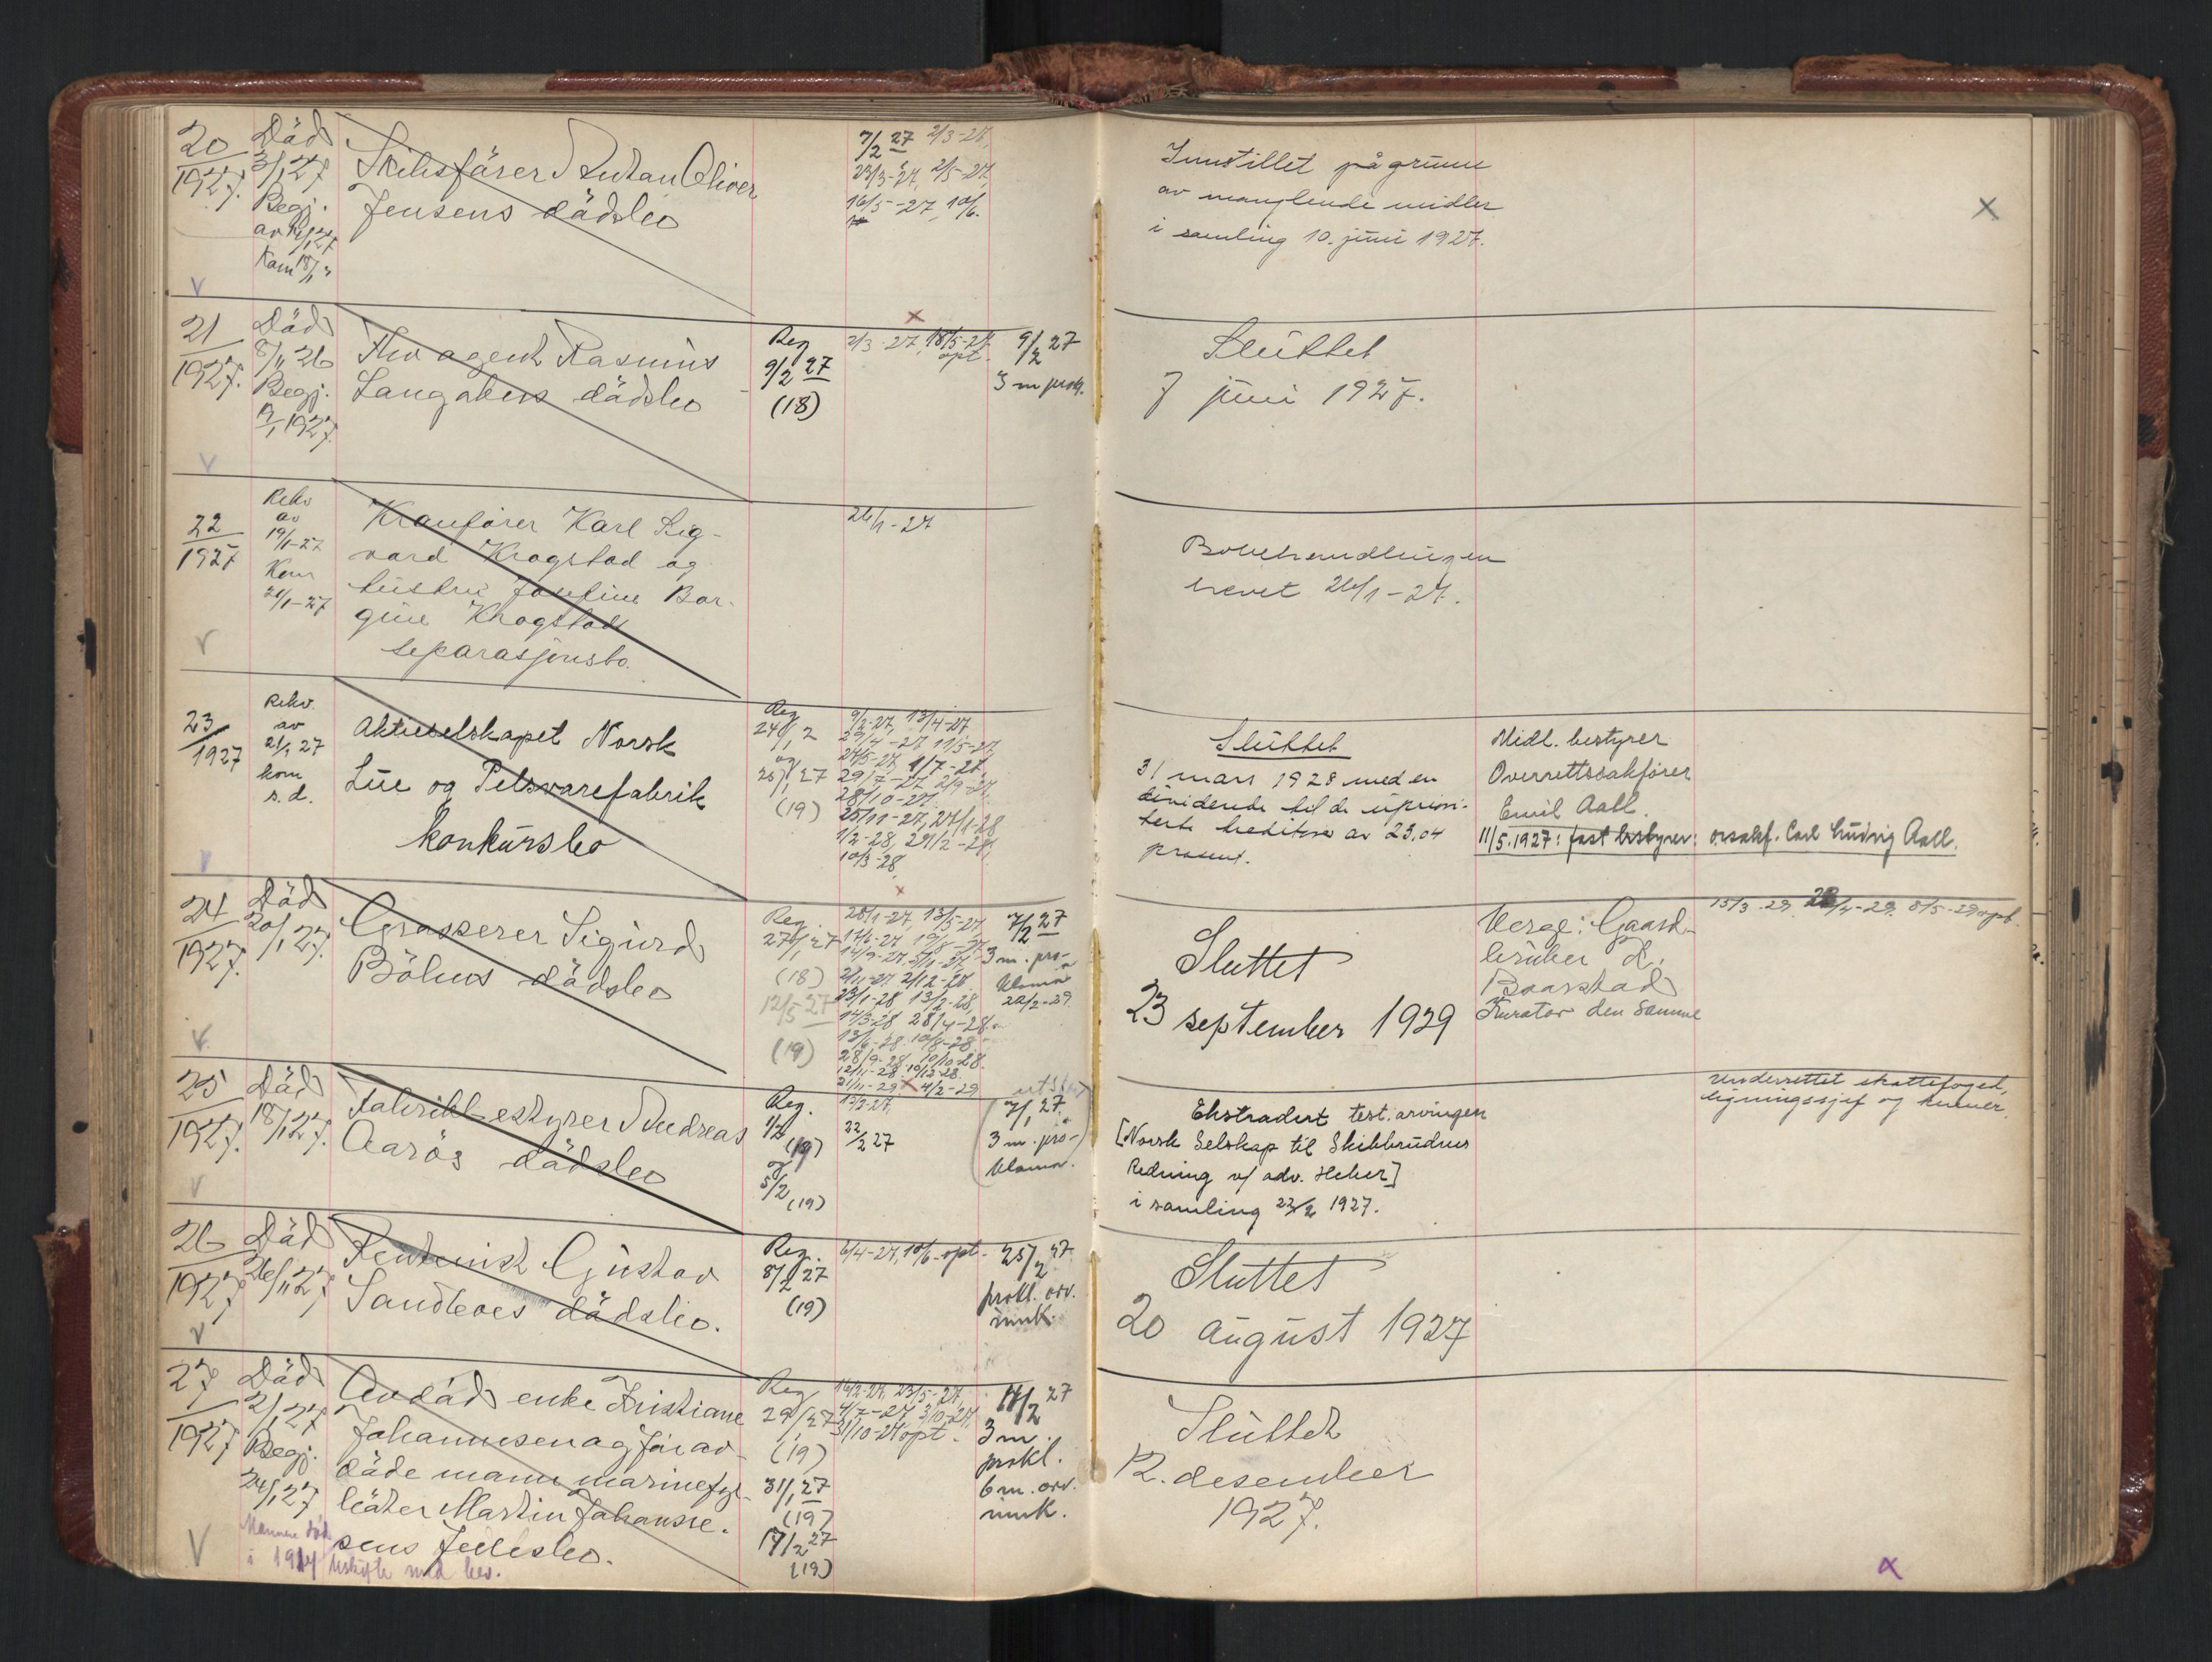 20
1927.
Död
3/1 27
Begj.
av 14/1 27
Kom 18/1 "
Skibsförer Anton Oliver
Jensens dödsbo
7/2 27 2/3-27,
23/3-27, 2/5-27,
16/5-27, 10/6.
Innstillet på grunn
av manglende midler
i samling 10. juni 1927.
x
V
21
1927.
Död
8/11 26
Begj.
1927.
Fhv agent Rasmus
Langakers dödsbo
Reg
9/2 27
(18)
2/3-27, 18/5-27
opt.
9/2 27
3 m prok.
Sluttet
7 juni 1927.
V
22
1927
Rekv
av
19/1-27
Kom
21/1-27
Kranfører Karl Sig-
vard Krogstad og
hustru Josefine Bor-
gine Krogstad
separasjonsbo.
26/1-27
Bobehandlingen
hevet 26/1-27.
V
23
1927
Rekv.
av
21/1 27
kom
s.d.
Aktieselskapet Norsk
Lue og Pelsvarefabrik
konkursbo
Reg
24/1
og
25/1 27
(19)
9/2-27, 13/4-27
27/4-27 11/5-27,
24/5-27, 1/7-27,
29/7-27, 2/9-27,
28/10-27.
25/11-27, 27/1-28
1/2-28, 29/2-28,
10/3-28.
Sluttet
31 mars 1928 med en
dividende til de upriori-
terte kreditorer av 23.04
prosent.
Midl. bestyrer
Overrettssakfører
Emil Aall.
11/5.1927: fast bestyrer: o.r.sakf. Carl Ludvig Aall.
V
24
1927.
Död
20/1 27.
Grosserer Sigurd
Böhns dödsbo
Reg.
27/1 27
(18)
12/5 27
(19)
28/1-27, 13/5-27,
2/11-27 2/12-27.
23/1-28, 13/2-28,
14/3-28 28/4-28.
13/6-28. 10/8-28.
28/9-28. 10/10-28.
12/11-28. 10/12-28.
21/11-29. 4/2-29
7/2 27
3 m. pro-
klama
22/2-29.
Sluttet
23 september 1929
Verge: Gaard-
bruker K.
Baarstad
Kurator den samme
15/3-29. 23/4-29. 8/5-29 opt.
V
25
1927.
Död
18/1 27.
Fabrikkbestyrer Andreas
Aarös dödsbo
Reg.
1/2
(19)
og
5/2 (19)
22/2 27
7/1 27.
3 m. pro-
klama.
Ekstradert test. arvingen
[Norsk Selskap til Skibbrudnes
Redning v/ adv. Heber]
i samling 22/2 1927.
Underrettet skattefoged,
ligningssjef og kemner.
V
26
1927
Död
26/1 27
Rentenist Gustav
Sandboes dödsbo.
Reg.
8/2 27
(19)
6/4-27, 10/6-opt.
25/2 27.
prokl. arv.
innk.
Sluttet
20 august 1927
V
27
1927
Död
2/1 27
Begj.
24/1 27
Avdöd enke Kristiane
Johannsen og för av-
döde mann marinefyr-
böter Martin Johannse-
sens fellesbo.
Mannen död
i 1914 uskifte med bev.
Reg
29/1 27
(19)
31/1 27
(19)
17/2 27
(19)
16/2-27, 23/5-27,
4/7-27, 3/10-27,
31/10-27 opt.
11/2 27
3 m.
prokl.
6 m. arv.
innk.
Sluttet
12. desember
1927.
V
x